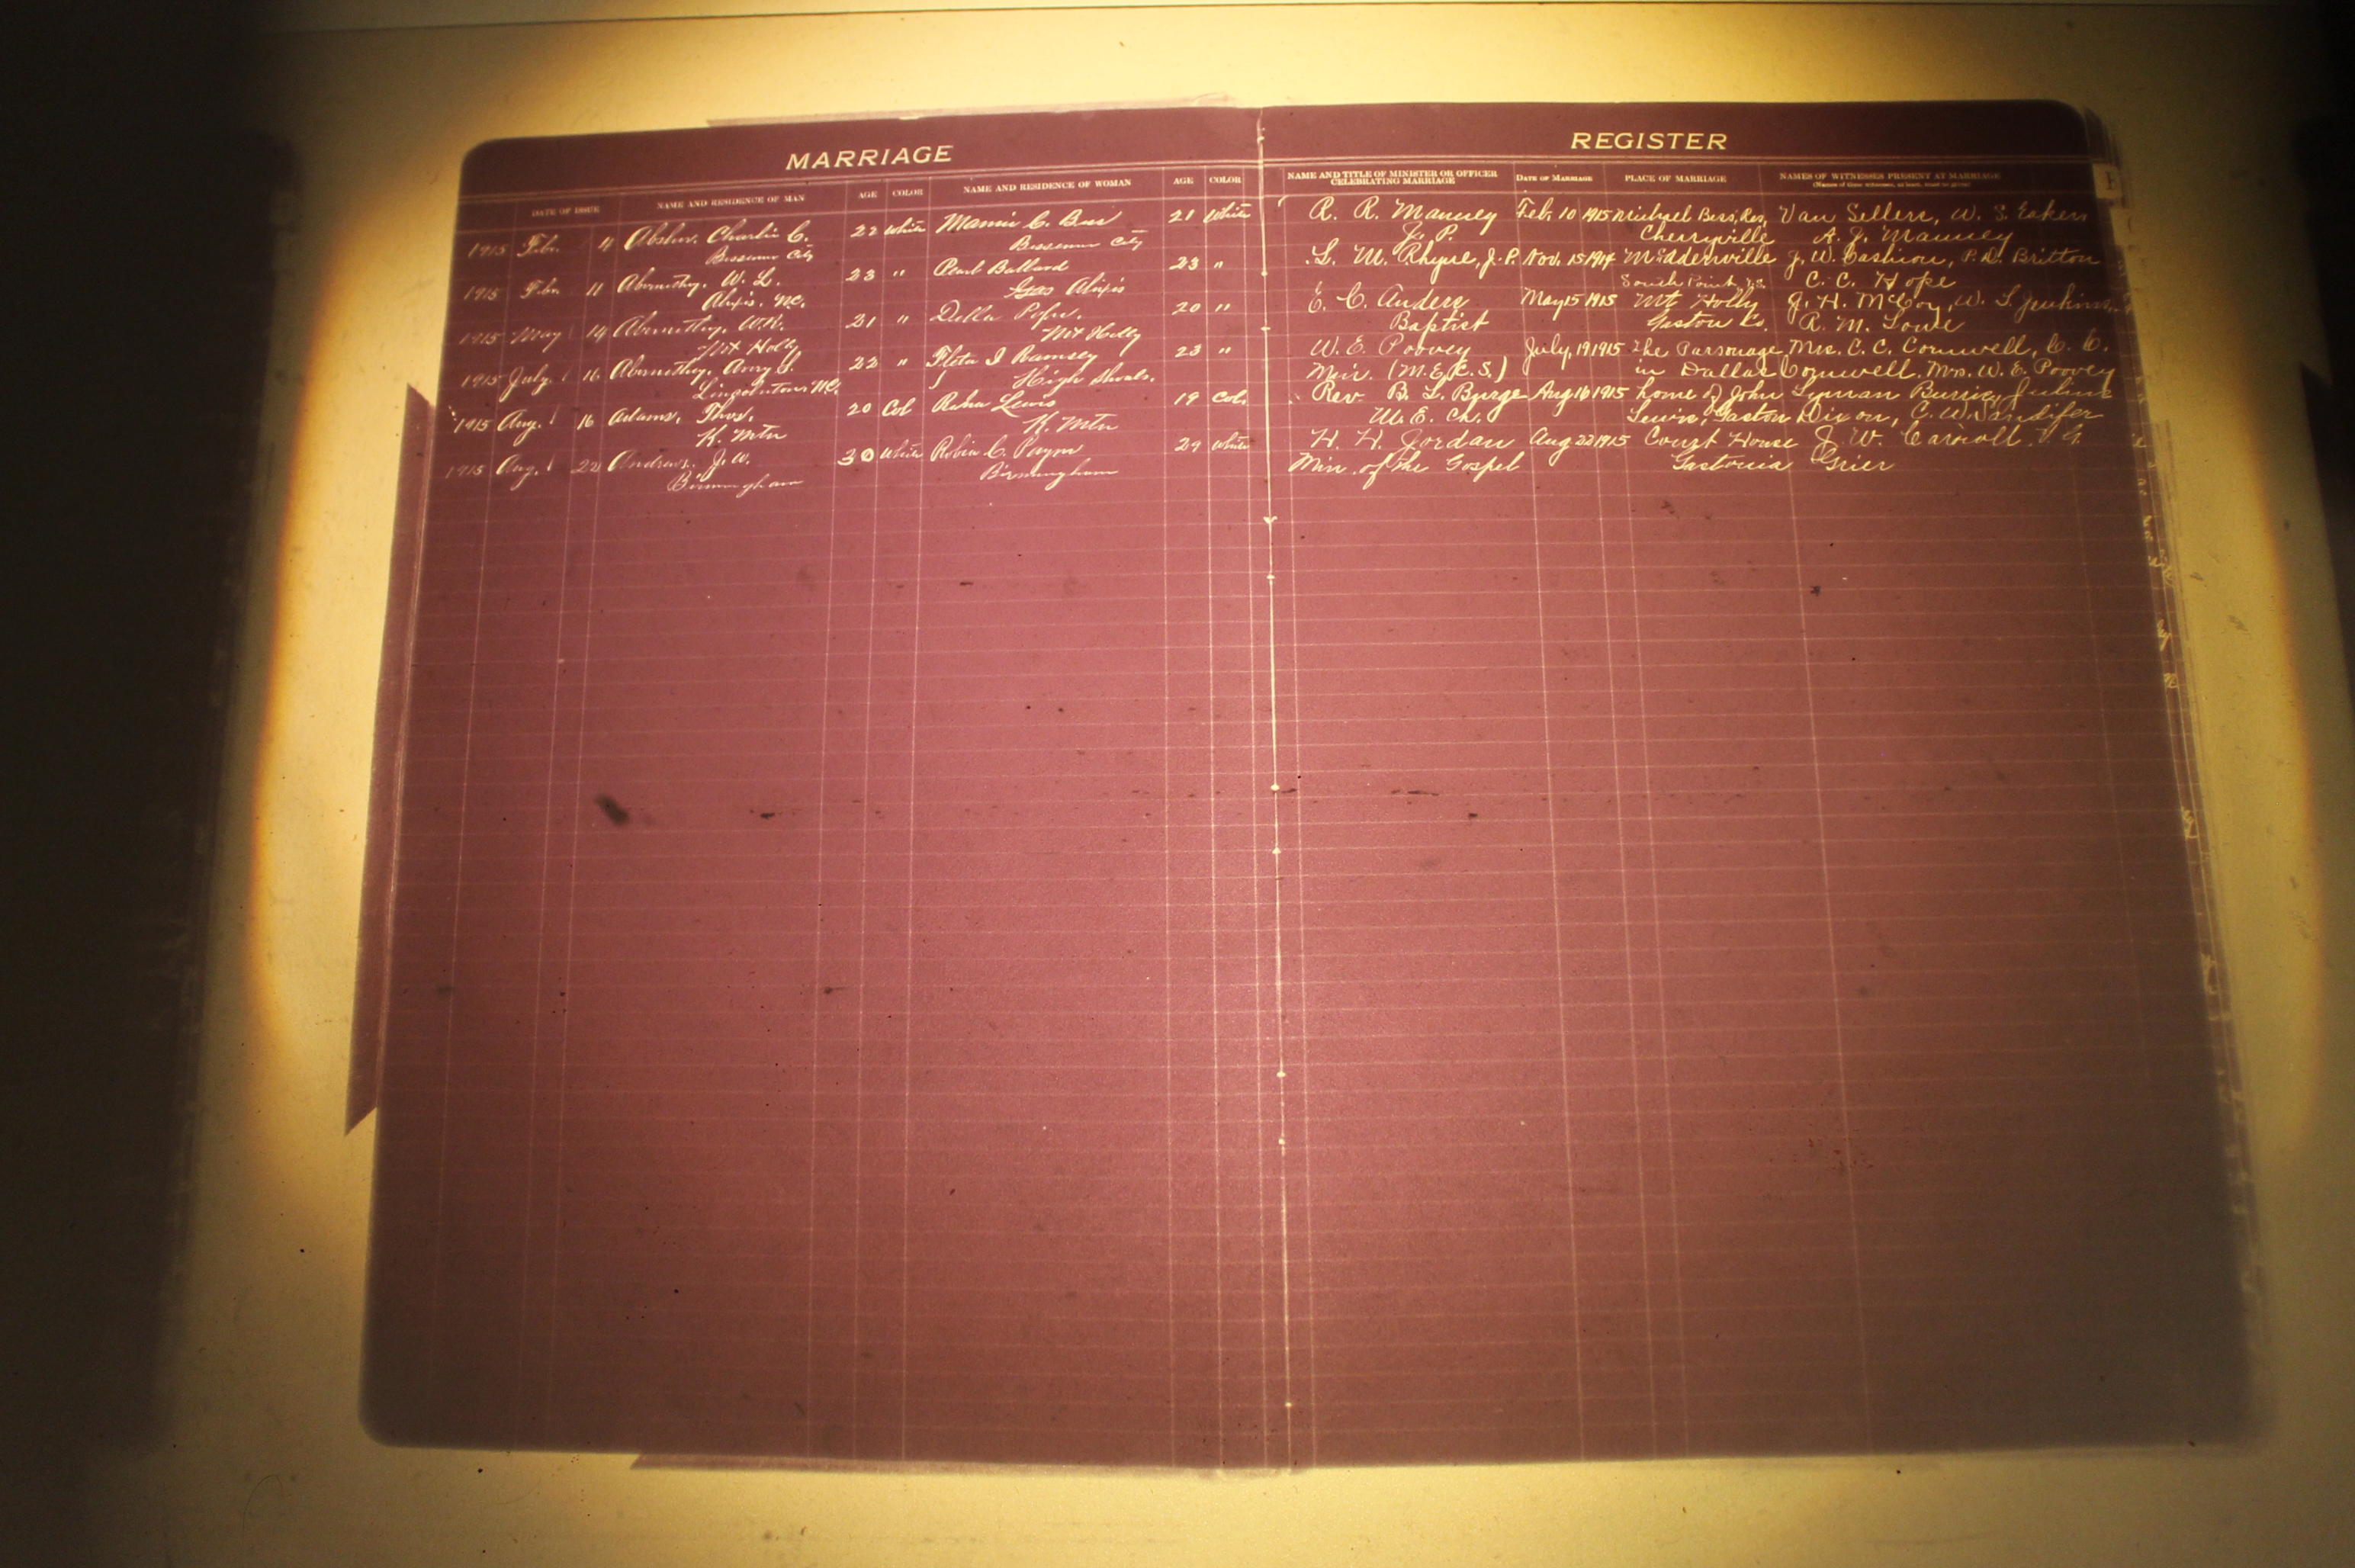 MARRIAGE
DATE OF ISSUE NAME AND RESIDENCE OF MAN AGE COLOR NAME AND RESIDENCE OF WOMAN AGE COLOR
1915 Feb. 4 Absher, Charlie C. 22 White Mamie C. Bess 21 White
Bessemer City Bessemer City
1915 Feb. 11 Abernethy, W. L. 23 " Pearl Ballard 23 "
Alexis, NC. Gas Alexis
1915 May 14 Abernethy, W.K. 21 " Della Pope. 20 "
Mt Holly Mt Holly
1915 July 16 Abernethy, Amry S. 22 " Fleta I Ramsey 23 "
Lincolnton, NC. High Shoals.
1915 Aug. 16 Adams, Thos. 20 Col Lewis 19 Col.
K. Mtn K. Mtn
1915 Aug. 22 Andrews, J. W. 30 White Robin C. Payne 29 White
Birmingham Birmingham
REGISTER
NAME AND TITLE OF MINISTER OR OFFICER CELEBRATING MARRIAGE DATE OF MARRIAGE PLACE OF MARRIAGE NAMES OF WITNESSES PRESENT AT MARRIAGE
(Names of three witnesses, at least, must be given)
R. R. Mauney Feb. 10 1915 Michael Bess, Res, Van Sellers, W. S. Eaker
J. P. Cherryville A. J. Mauney
L. M. Rhyne, J. P. Nov. 15 1914 McAdenville J. W. Cashion, P. D. Britton
South Point, C. C. Hope
E. C. Andere May 15 1915 Mt Holly J. H. McCoy, W. L. Jenkins,
Baptist Gaston Co. R. M. Lowe
W. E. Poovey July, 19, 1915 The Parsonage Mrs. C. C. Cornwell, C. C.
Min. (M.E.C.S.) in Dallas Cornwell, Mrs. W. E. Poovey
Rev. B. L. Burge Aug 16 1915 home of John Lyman Burris, Julius
M. E. Ch. Lewis, Gaston Dixon, C. W. Sandifer
H. H. Jordan Aug 22 1915 Court House J. W. Carroll
Min. of the Gospel Gastonia Grier